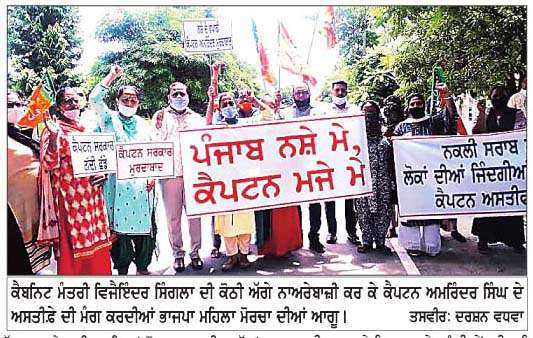 ਕੈਪਟਨ ਸਰਕਾਰ
ਗੱਦੀ ਛੱਡੋ
ਕੈਪਟਨ ਸਰਕਾਰ
ਮੁਰਦਾਬਾਦ
ਪੰਜਾਬ ਨਸ਼ੇ ਮੇ,
ਕੈਪਟਨ ਮਜੇ ਮੇ
ਨਕਲੀ ਸਰਾਬ
ਲੋਕਾਂ ਦੀਆਂ ਜਿੰਦਗੀਆਂ
ਕੈਪਟਨ ਅਸਤੀਫ
ਕੈਬਨਿਟ ਮੰਤਰੀ ਵਿਜੈਇੰਦਰ ਸਿੰਗਲਾ ਦੀ ਕੋਠੀ ਅੱਗੇ ਨਾਅਰੇਬਾਜ਼ੀ ਕਰ ਕੇ ਕੈਪਟਨ ਅਮਰਿੰਦਰ ਸਿੰਘ ਦੇ
ਅਸਤੀਫ਼ੇ ਦੀ ਮੰਗ ਕਰਦੀਆਂ ਭਾਜਪਾ ਮਹਿਲਾ ਮੋਰਚਾ ਦੀਆਂ ਆਗੂ। ਤਸਵੀਰ: ਦਰਸ਼ਨ ਵਧਵਾ